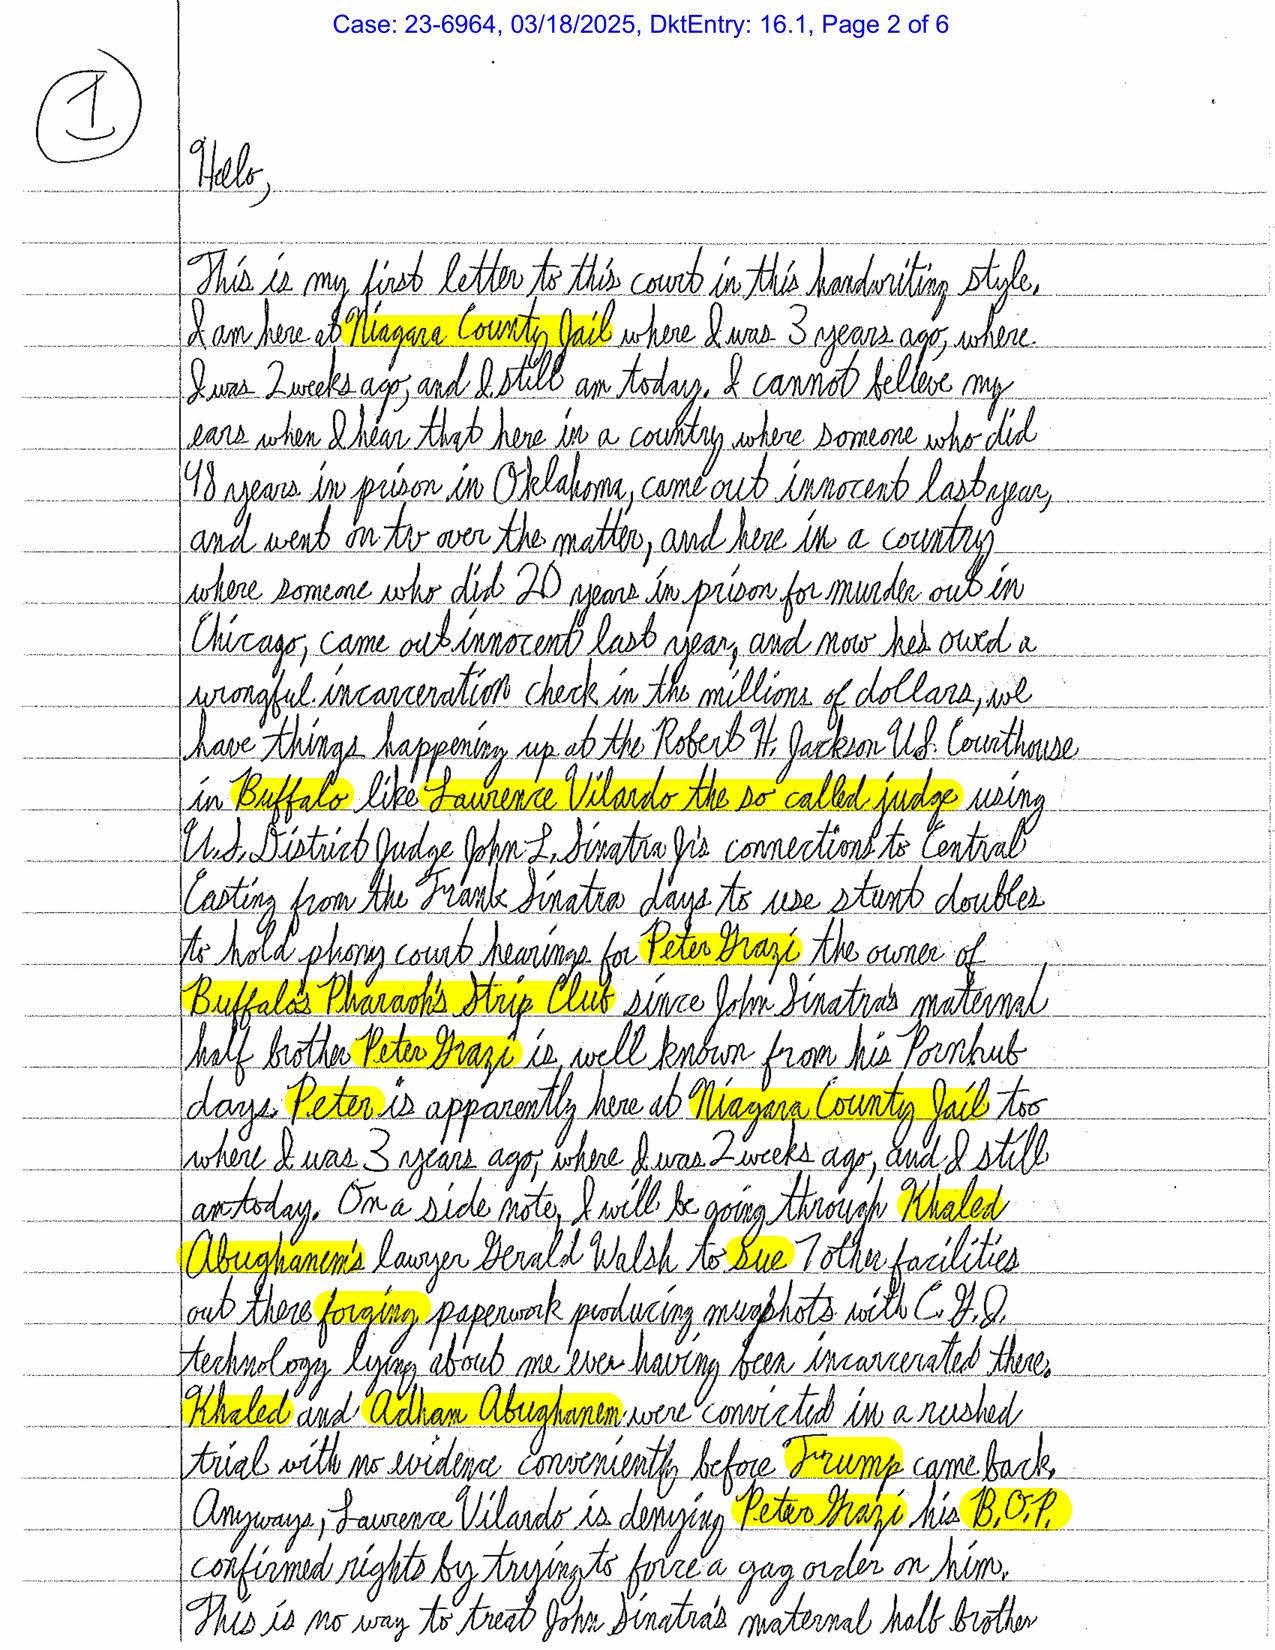 Case: 23-6964, 03/18/2025, DktEntry: 16.1, Page 2 of 6
1
Hello,
This is my first letter to this court in this handwriting style.
I am here at Niagara County Jail where I was 3 years ago, where
I was 2 weeks ago, and I still am today. I cannot believe my
ears when I hear that here in a country where someone who did
48 years in prison in Oklahoma, came out innocent last year,
and went on tv over the matter, and here in a country
where someone who did 20 years in prison for murder out in
Chicago, came out innocent last year, and now he's owed a
wrongful incarceration check in the millions of dollars, we
have things happening up at the Robert H. Jackson U.S. Courthouse
in Buffalo like Lawrence Vilardo the so called judge using
U.S. District Judge John L. Sinatra Jr's connections to Central
Casting from the Frank Sinatra days to use stunt doubles
to hold phony court hearings for Peter Grazi the owner of
Buffalo's Pharaoh's Strip Club since John Sinatra's maternal
half brother Peter Grazi is well known from his Pornhub
days. Peter is apparently here at Niagara County Jail too
where I was 3 years ago, where I was 2 weeks ago, and I still
am today. On a side note, I will be going through Khaled
Abughanem's lawyer Gerald Walsh to sue 7 other facilities
out there forging paperwork producing mugshots with C.G.I.
technology lying about me ever having been incarcerated there.
Khaled and Adham Abughanem were convicted in a rushed
trial with no evidence conveniently before Trump came back.
Anyways, Lawrence Vilardo is denying Peter Grazi his B.O.P.
confirmed rights by trying to force a gag order on him.
This is no way to treat John Sinatra's maternal half brother